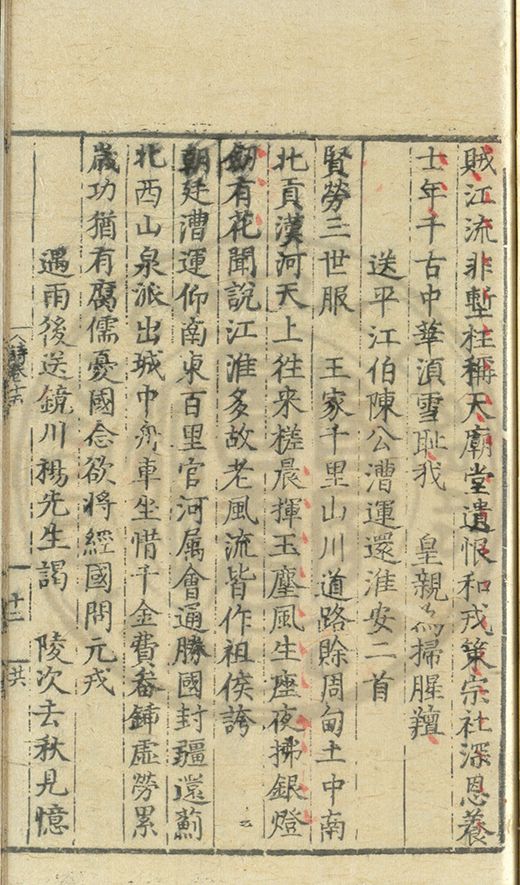 賊江流非塹枉稱天廟堂遺恨和戎策宗社深恩養
士年千古中華湏雪耻我 皇親為掃腥羶
送平江伯陳公漕運還淮安二首
賢勞三世服 王家千里山川道路賒周甸土中南
北貢漢河天上往來槎晨揮玉麈風生座夜拂銀燈
劒有花聞說江淮多故老風流皆作祖侯誇
朝廷漕運仰南東百里官河属會通勝國封疆還薊
北西山泉派出城中舟車坐惜千金費畚鍤虛勞累
歲功猶有腐儒憂國念欲將經國問元戎
遇雨後送鏡川楊先生謁 陵次去秋見憶
詩卷十六
十二
共